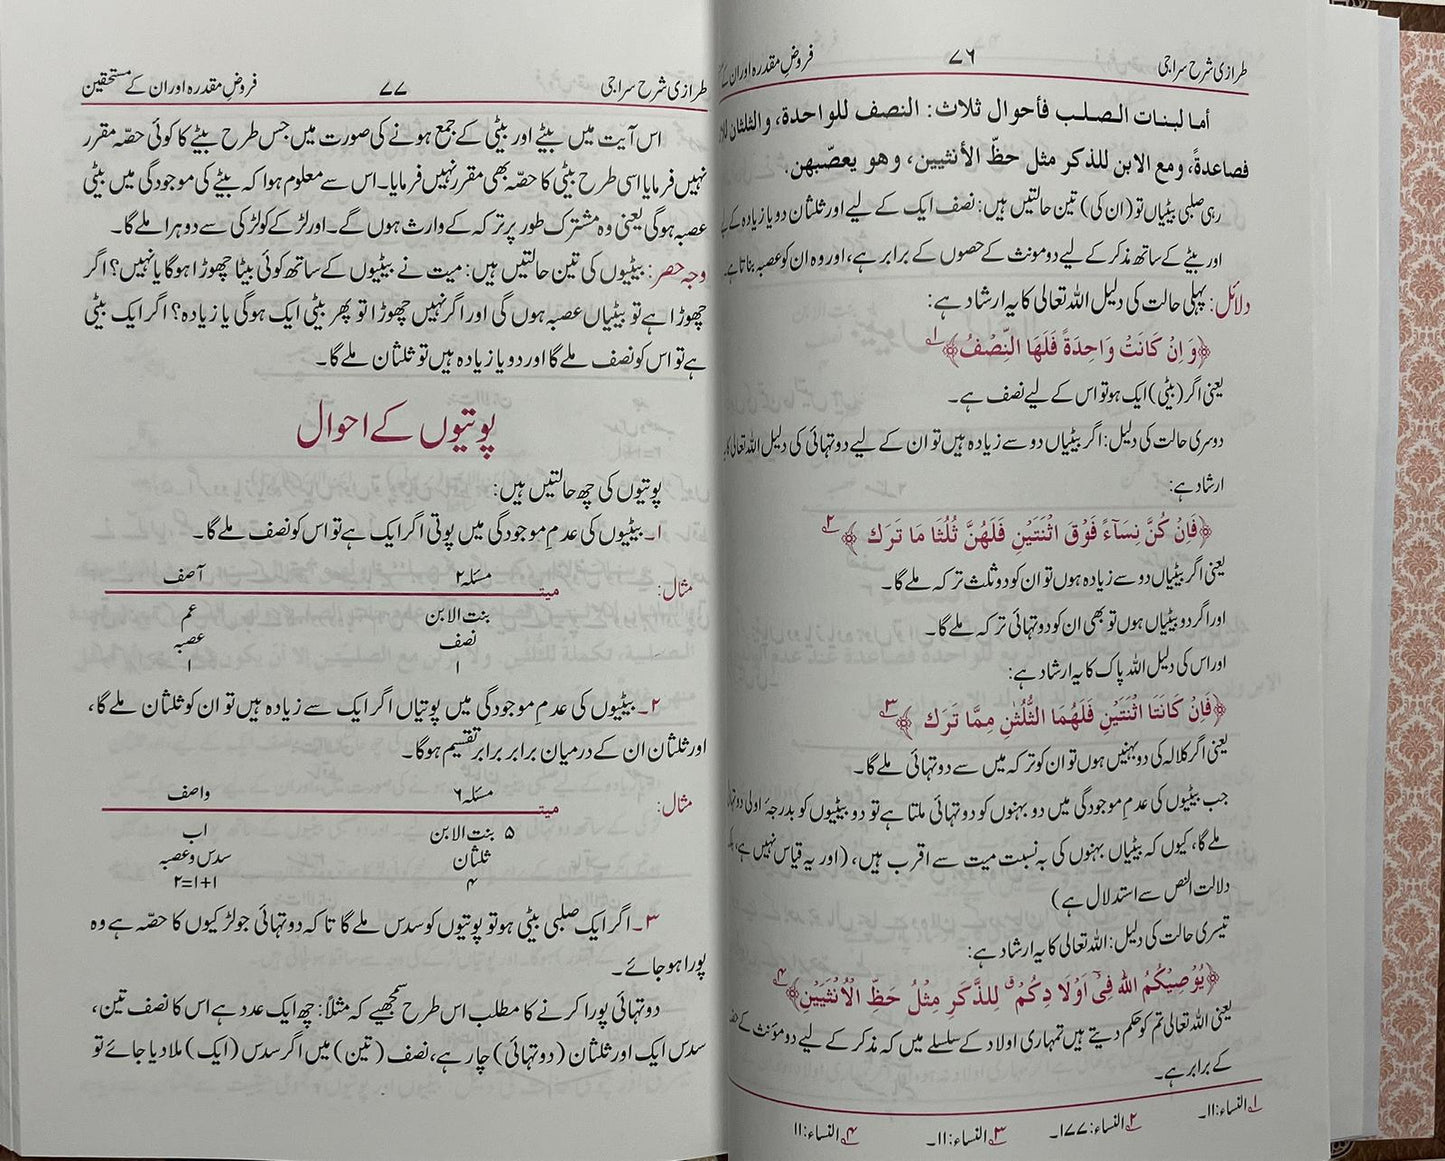 طرازی شرح سراجی ۷۶ فروضِ مقدرہ اور ان کے
أما لبنات الصلب فأحوال ثلاث: النصف للواحدة، والثلثان
فصاعدةً، ومع الابن للذكر مثل حظّ الأنثيين، وهو يعصّبهن.
رہی صلبی بیٹیاں تو (ان کی) تین حالتیں ہیں: نصف ایک کے لیے اور ثلثان دو یا زیادہ کے
اور بیٹے کے ساتھ مذکر کے لیے دو مونث کے حصوں کے برابر ہے، اور وہ ان کو عصبہ بناتا ہے۔
دلائل: پہلی حالت کی دلیل اللہ تعالی کا یہ ارشاد ہے:
﴿وَ اِنْ كَانَتْ وَاحِدَةً فَلَهَا النِّصْفُ﴾ ۱
یعنی اگر (بیٹی) ایک ہو تو اس کے لیے نصف ہے۔
دوسری حالت کی دلیل: اگر بیٹیاں دو سے زیادہ ہیں تو ان کے لیے دو تہائی کی دلیل اللہ تعالی کا
ارشاد ہے:
﴿فَاِنْ كُنَّ نِسَآءً فَوْقَ اثْنَتَيْنِ فَلَهُنَّ ثُلُثَا مَا تَرَكَ﴾ ۲
یعنی اگر بیٹیاں دو سے زیادہ ہوں تو ان کو دو ثلث ترکہ ملے گا۔
اور اگر دو بیٹیاں ہوں تو بھی ان کو دو تہائی ترکہ ملے گا۔
اور اس کی دلیل اللہ پاک کا یہ ارشاد ہے:
﴿فَاِنْ كَانَتَا اثْنَتَيْنِ فَلَهُمَا الثُّلُثٰنِ مِمَّا تَرَكَ﴾ ۳
یعنی اگر کلالہ کی دو بہنیں ہوں تو ان کو ترکہ میں سے دو تہائی ملے گا۔
جب بیٹیوں کی عدمِ موجودگی میں دو بہنوں کو دو تہائی ملتا ہے تو دو بیٹیوں کو بدرجۂ اولی دو تہائی
ملے گا، کیوں کہ بیٹیاں بہنوں کی بہ نسبت میت سے اقرب ہیں، (اور یہ قیاس نہیں ہے،
دلالت النص سے استدلال ہے)
تیسری حالت کی دلیل: اللہ تعالی کا یہ ارشاد ہے:
﴿يُوْصِيْكُمُ اللّٰهُ فِىْٓ اَوْلَادِكُمْ ق لِلذَّكَرِ مِثْلُ حَظِّ الْاُنْثَيَيْنِ﴾ ۴
یعنی اللہ تعالی تم کو حکم دیتے ہیں تمہاری اولاد کے سلسلے میں کہ مذکر کے لیے دو مؤنث کے
کے برابر ہے۔
۱ النساء:۱۱۔ ۲ النساء:۱۷۷۔ ۳ النساء:۱۱۔ ۴ النساء:۱۱
طرازی شرح سراجی ۷۷ فروضِ مقدرہ اور ان کے مستحقین
اس آیت میں بیٹے اور بیٹی کے جمع ہونے کی صورت میں جس طرح بیٹے کا کوئی حصّہ مقرر
نہیں فرمایا اسی طرح بیٹی کا حصّہ بھی مقرر نہیں فرمایا۔ اس سے معلوم ہوا کہ بیٹے کی موجودگی میں بیٹی
عصبہ ہوگی یعنی وہ مشترک طور پر ترکہ کے وارث ہوں گے۔ اور لڑکے کو لڑکی سے دوہرا ملے گا۔
وجہ حصر: بیٹیوں کی تین حالتیں ہیں: میت نے بیٹیوں کے ساتھ کوئی بیٹا چھوڑا ہوگا یا نہیں؟ اگر
چھوڑا ہے تو بیٹیاں عصبہ ہوں گی اور اگر نہیں چھوڑا تو پھر بیٹی ایک ہوگی یا زیادہ؟ اگر ایک بیٹی
ہے تو اس کو نصف ملے گا اور دو یا زیادہ ہیں تو ثلثان ملے گا۔
پوتیوں کے احوال
پوتیوں کی چھ حالتیں ہیں:
۱۔ بیٹیوں کی عدمِ موجودگی میں پوتی اگر ایک ہے تو اس کو نصف ملے گا۔
مثال: میت مسئلہ۲ آصف
بنت الابن عم
نصف عصبہ
۱ ۱
۲۔ بیٹیوں کی عدمِ موجودگی میں پوتیاں اگر ایک سے زیادہ ہیں تو ان کو ثلثان ملے گا،
اور ثلثان ان کے درمیان برابر برابر تقسیم ہوگا۔
مثال: میت مسئلہ۶ واصف
۵ بنت الابن اب
ثلثان سدس وعصبہ
۴ ۱+۱=۲
۳۔ اگر ایک صلبی بیٹی ہو تو پوتیوں کو سدس ملے گا تاکہ دو تہائی جو لڑکیوں کا حصّہ ہے وہ
پورا ہو جائے۔
دو تہائی پورا کرنے کا مطلب اس طرح سمجھیے کہ مثلاً: چھ ایک عدد ہے اس کا نصف تین،
سدس ایک اور ثلثان (دو تہائی) چار ہے، نصف (تین) میں اگر سدس (ایک) ملادیا جائے تو